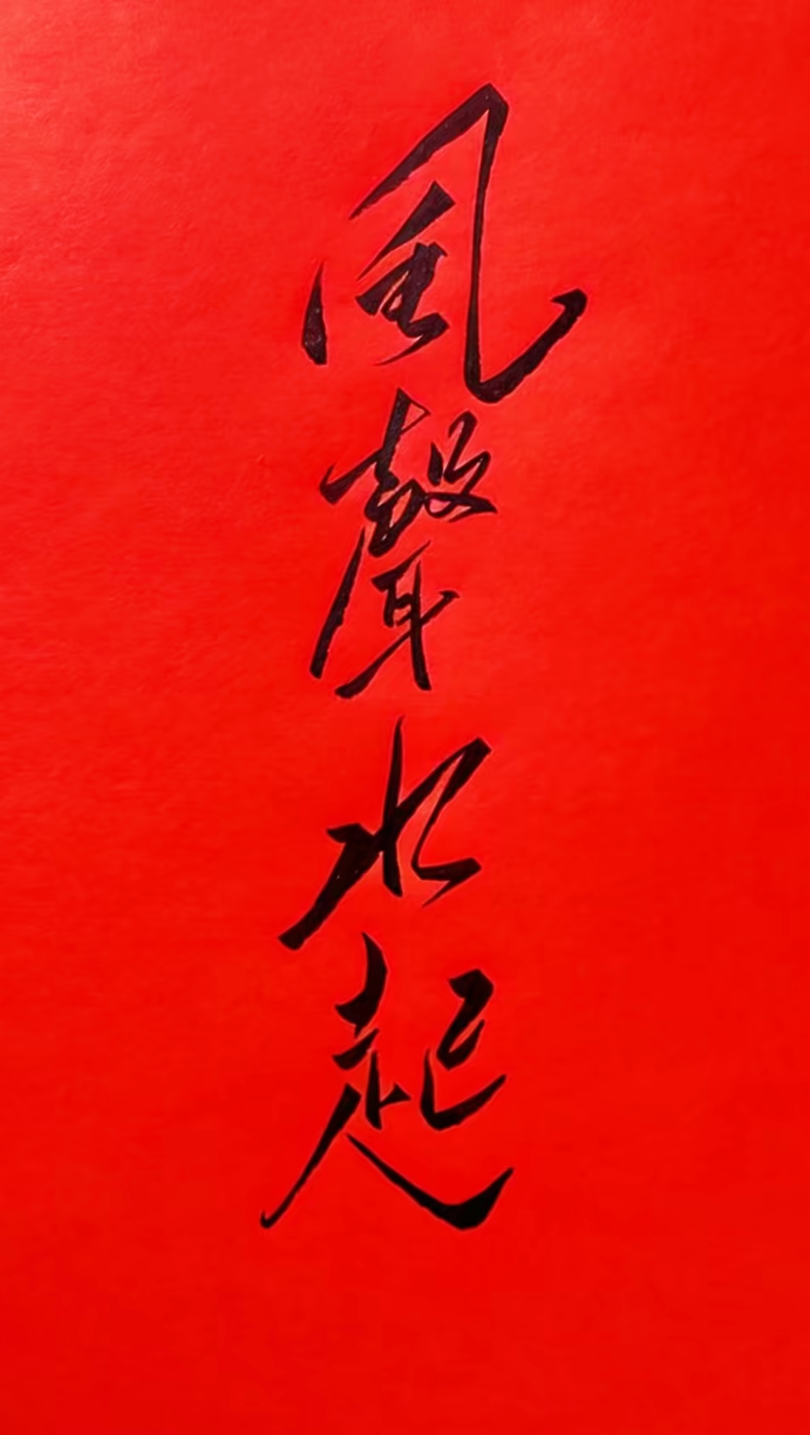 風聲水起